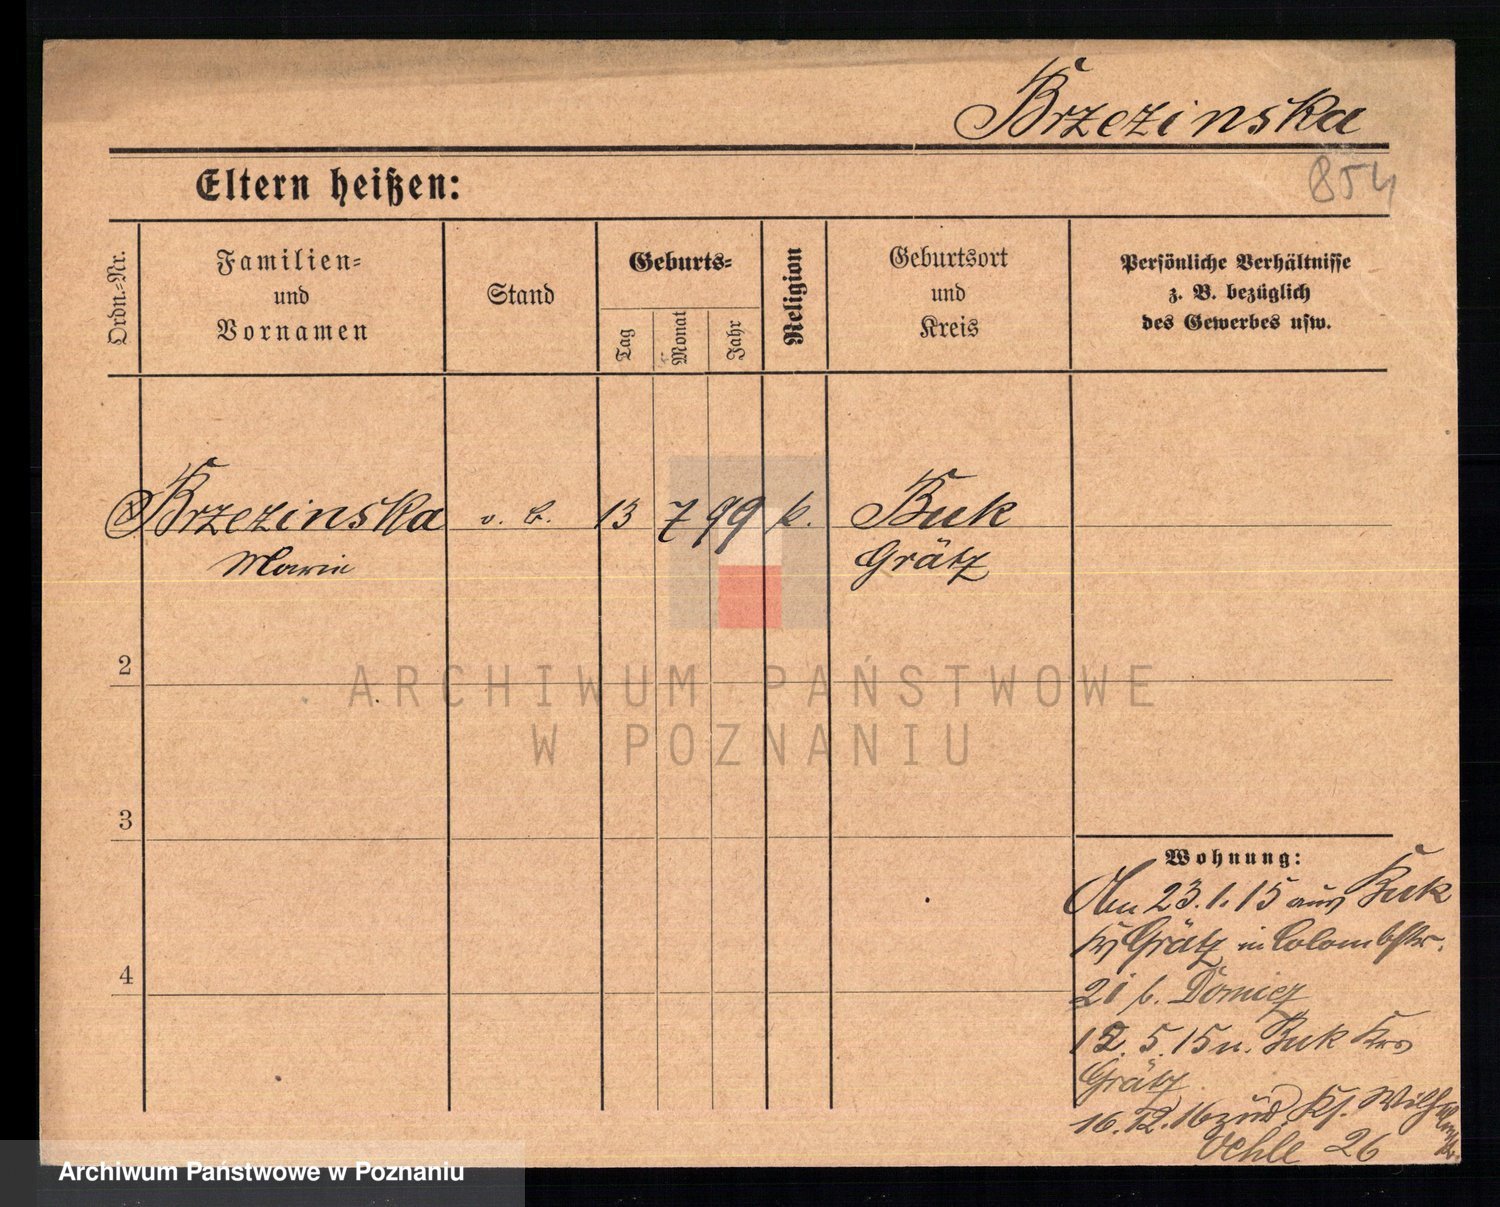 Brzezinska
854
Eltern heißen:
Ordn.-Nr.
Familien-
und
Vornamen
Stand
Geburts-
Tag
Monat
Jahr
Religion
Geburtsort
und
Kreis
Persönliche Verhältnisse
z. B. bezüglich
des Gewerbes usw.
Brzezinska
Marie
13 7 99 k.
Buk
Grätz
2
3
4
Wohnung:
Am 23.1.15 aus Buk
Grätz in Colombstr.
21 b.
12.5.15 n. Buk Krs
Grätz
16.12.16 zur.
26
ARCHIWUM PAŃSTWOWE
W POZNANIU
Archiwum Państwowe w Poznaniu